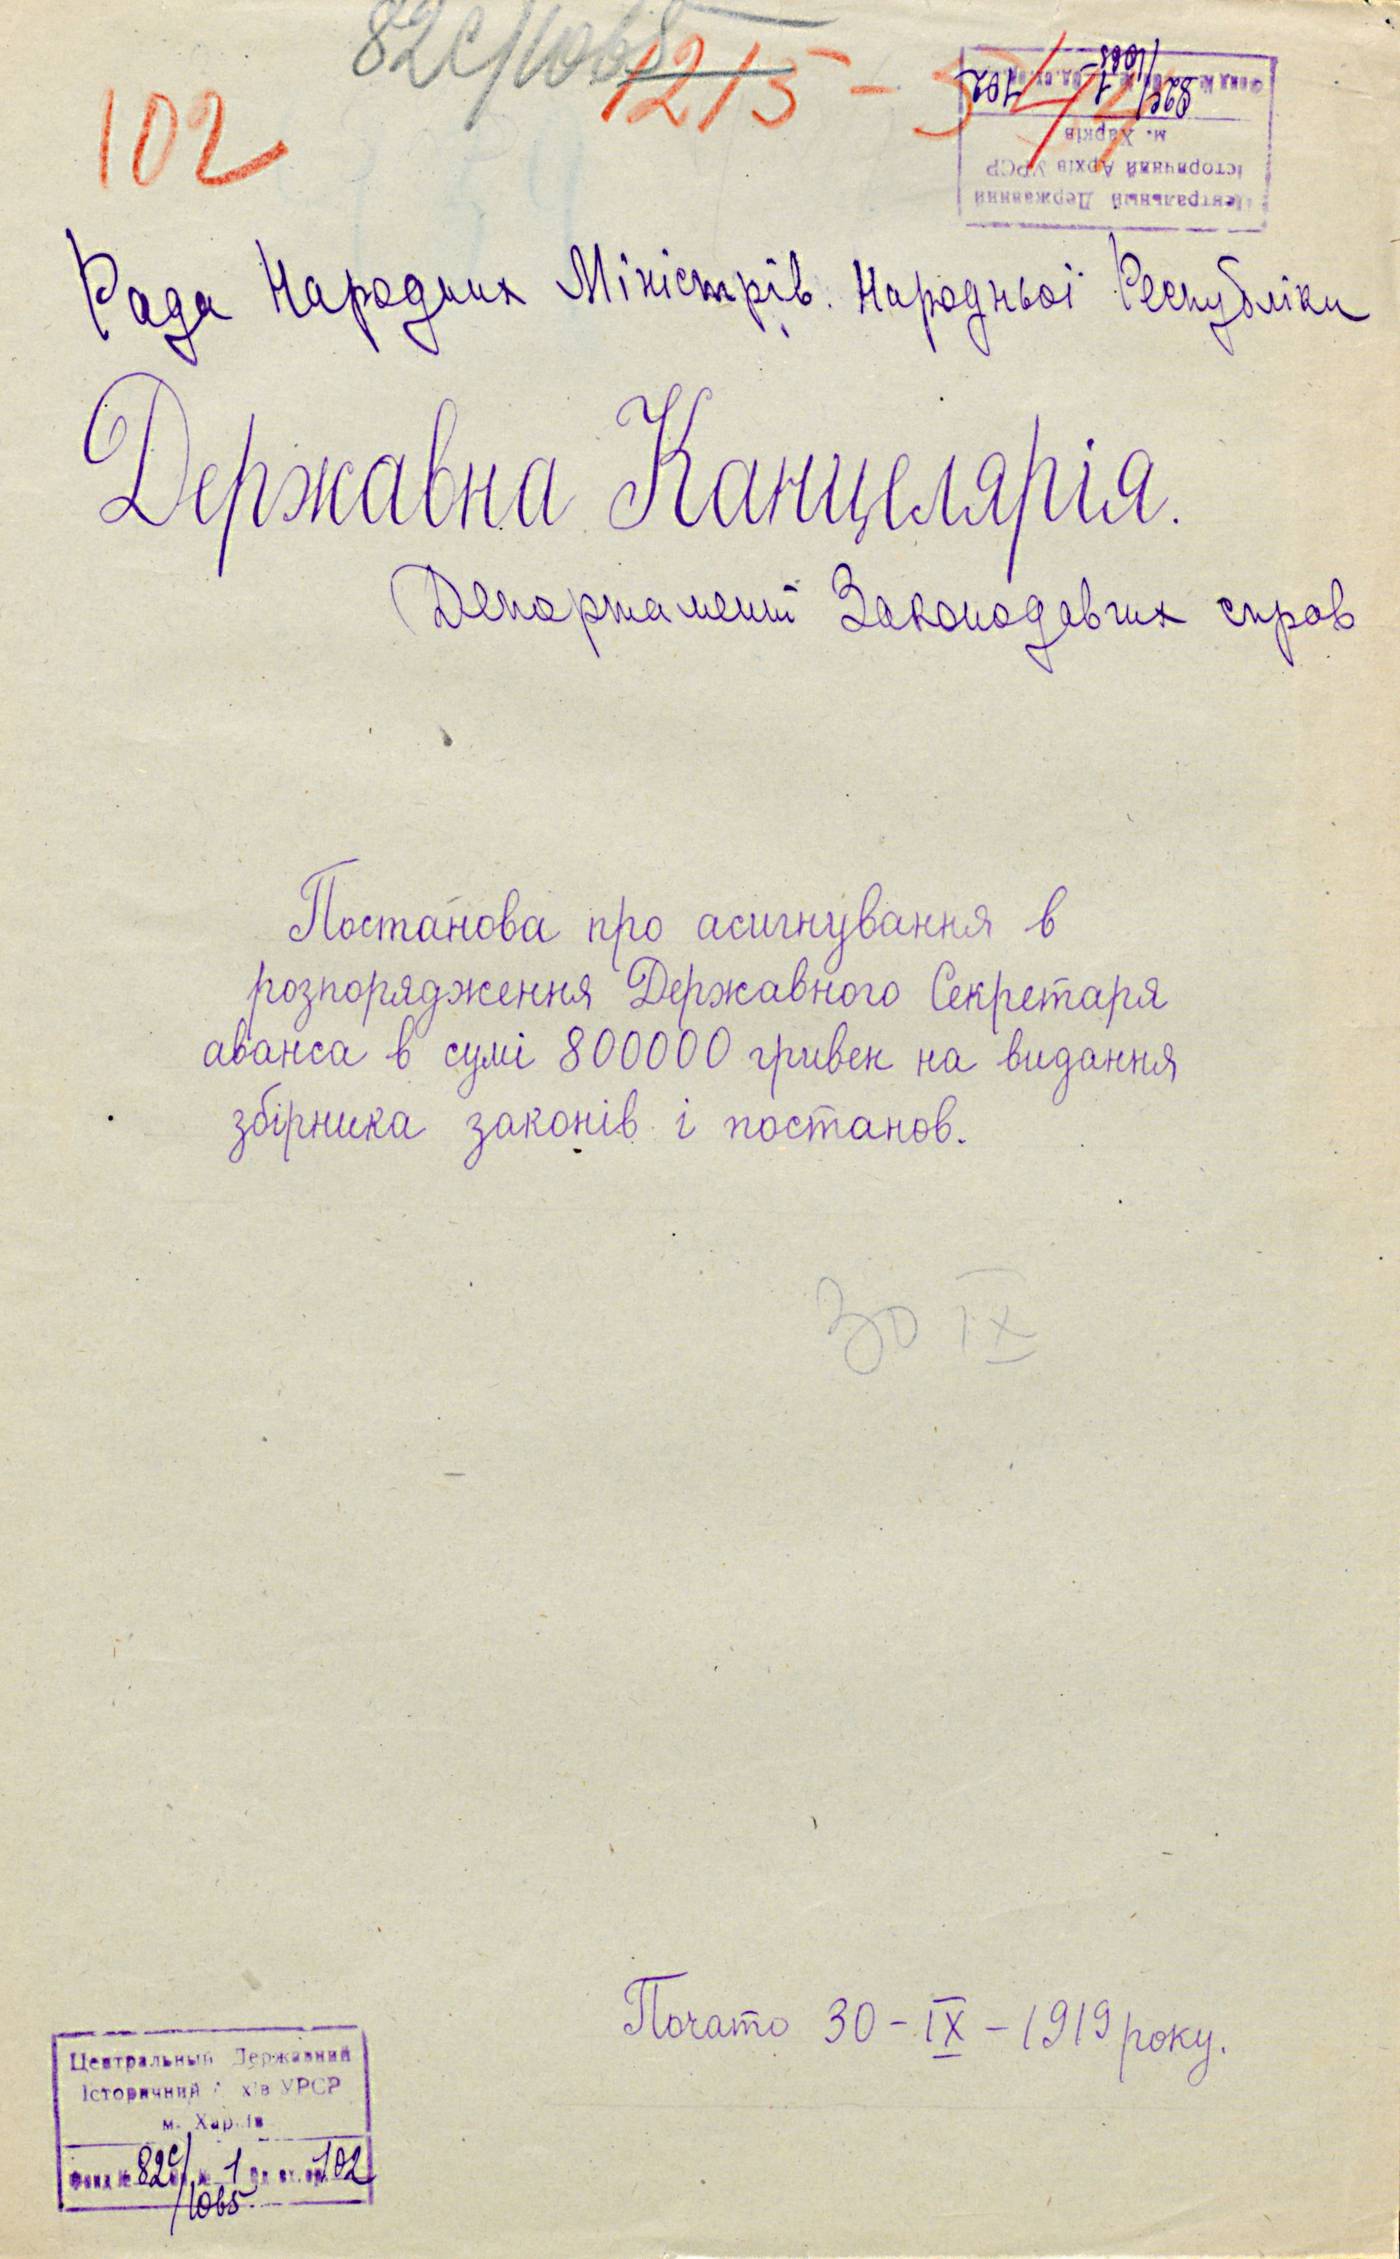 82с/1065
102
1215 -
Центральный Державний
Історичний Архів УРСР
м. Харків
Фонд № 82с/1065 оп. № 1 од. зб. 102
Рада Народних Міністрів. Народньої Республіки
Державна Канцелярія.
Департамент Законодавчих справ
Постанова про асигнування в
розпорядження Державного Секретаря
аванса в сумі 800000 гривен на видання
збірника законів і постанов.
30 IX
Почато 30 - IX - 1919 року.
Центральный Державний
Історичний Архів УРСР
м. Харків
Фонд № 82с/1065 оп. № 1 од. зб. 102